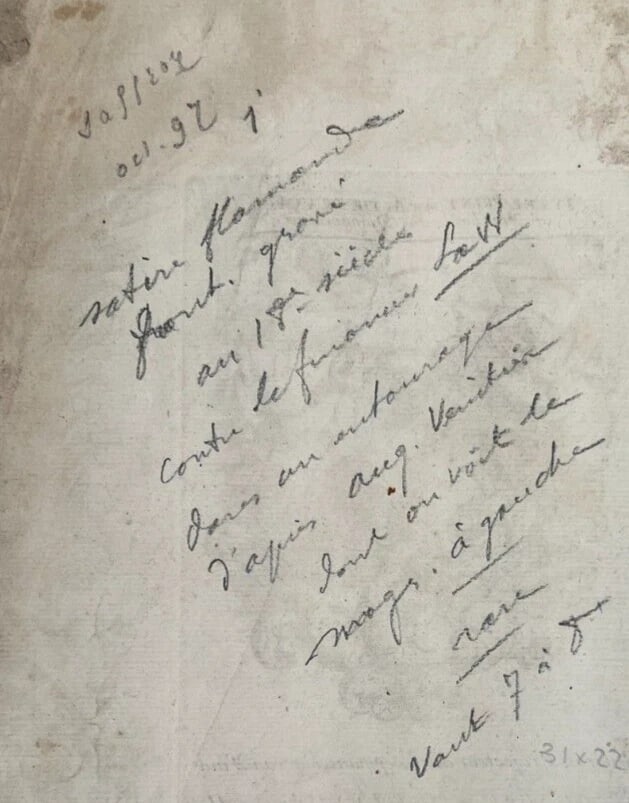 Saffroy
oct. 97 1'
satire flamande
front. gravé
au 18e siècle
contre le financier LaW
dans un entourage
d'après aug. Venitien
dont on voit le
monogr. à gauche
rare
Vaut 7 à 8
31 x 22